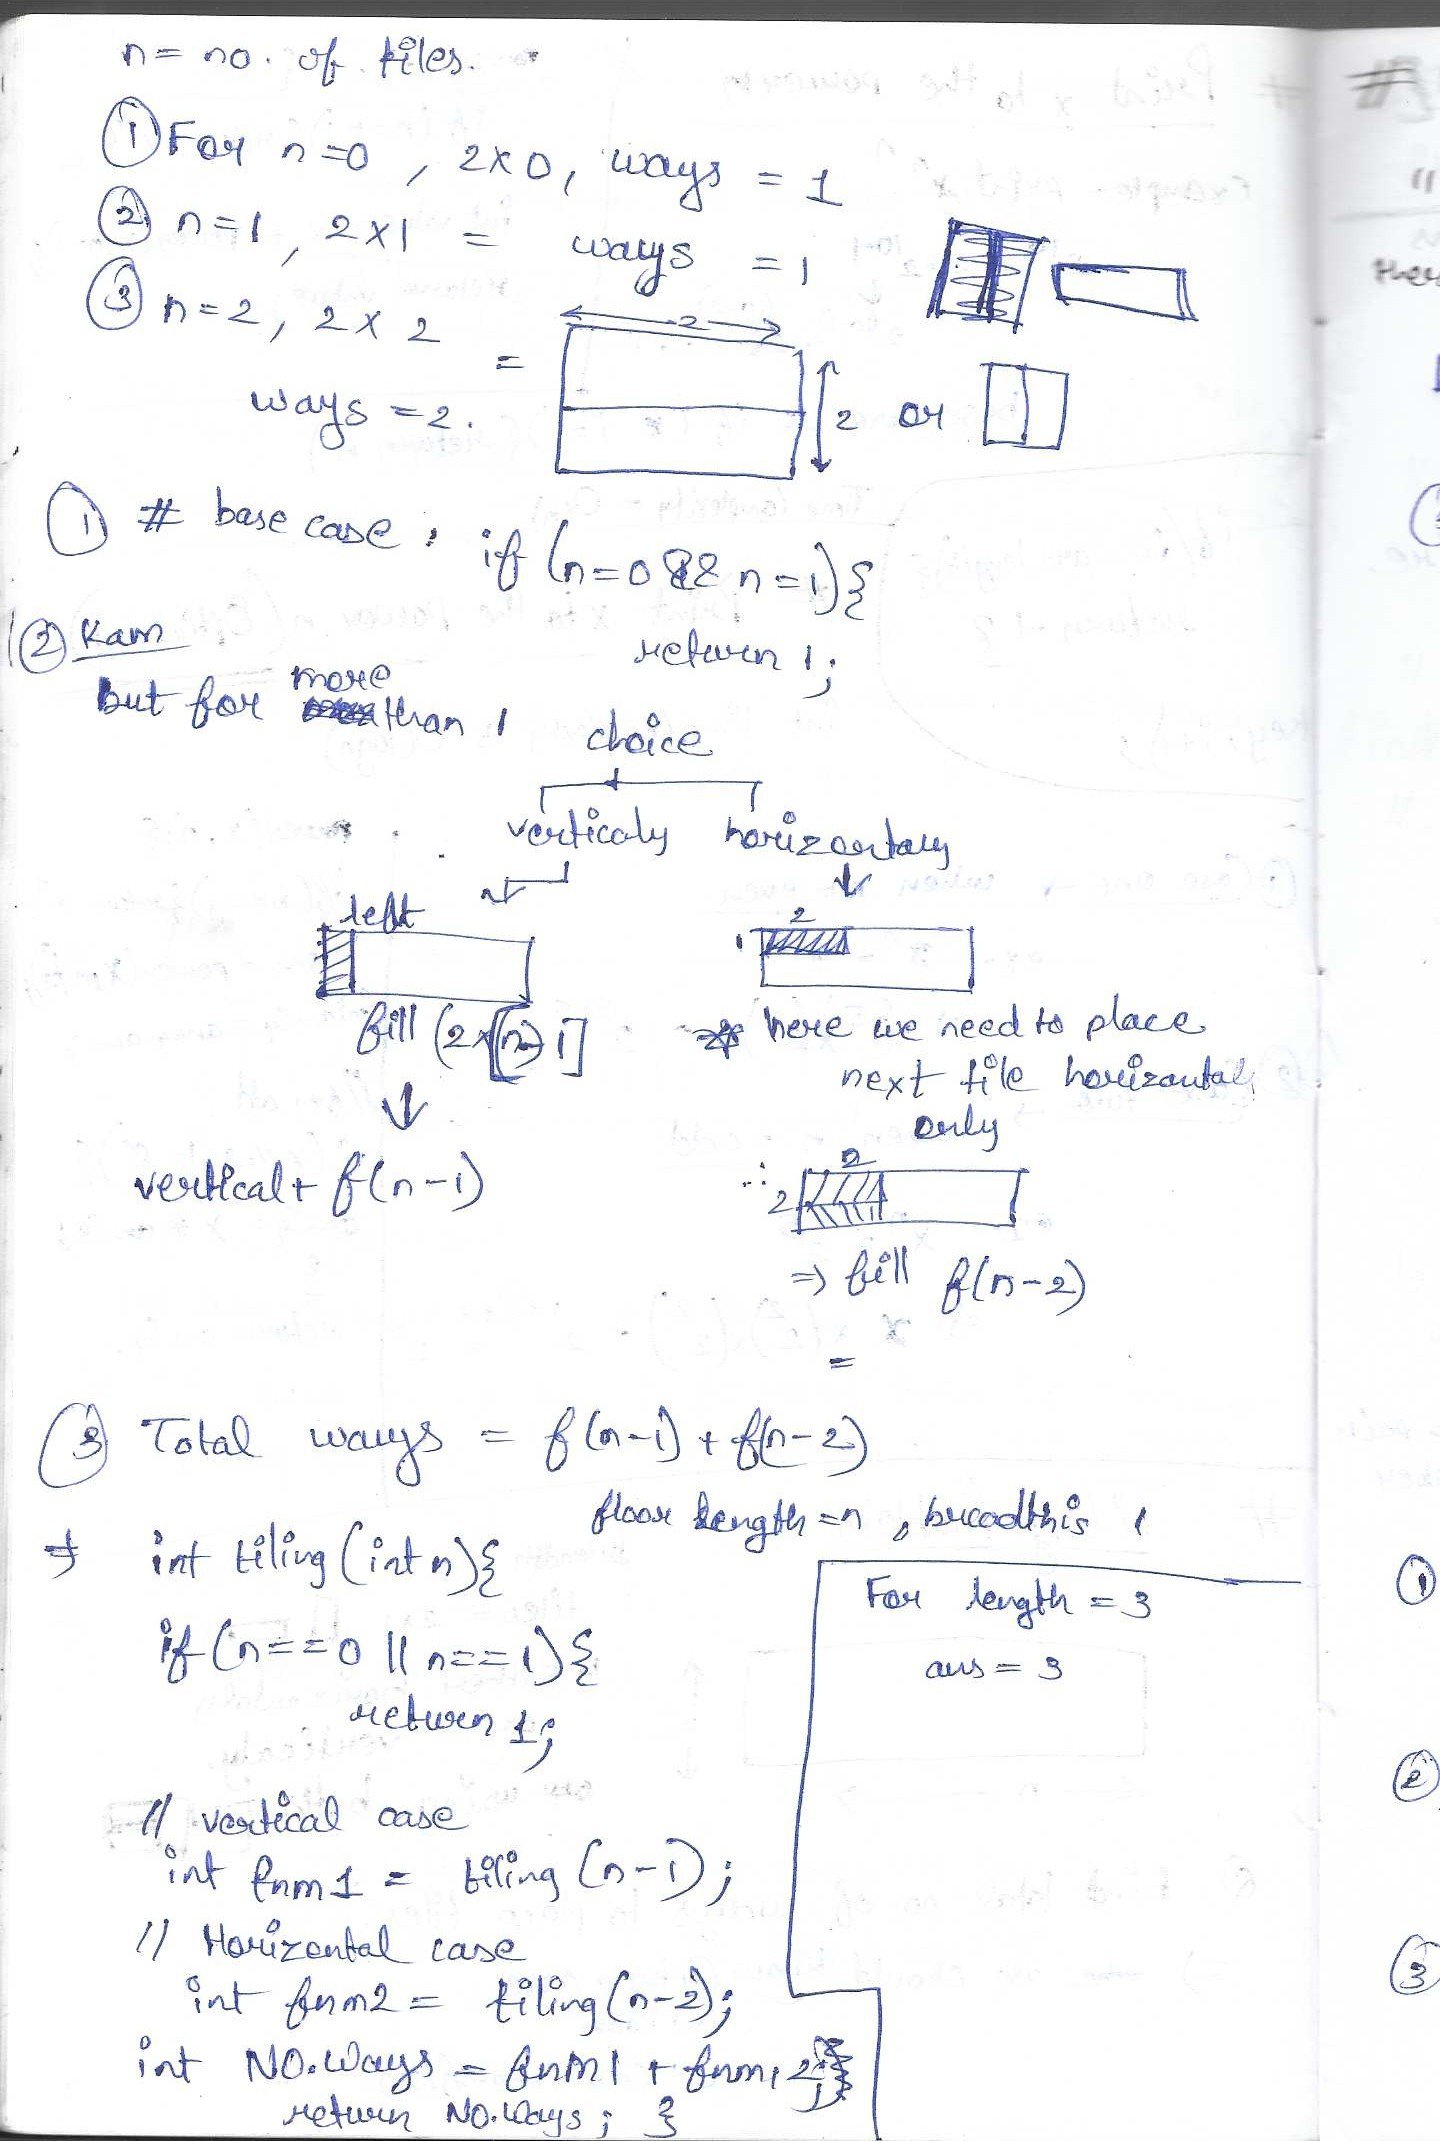 n = no. of tiles.
① For n=0, 2x0, ways = 1
② n=1, 2x1 = ways = 1
③ n=2, 2 x 2
= 2
2 or
ways = 2.
① # base case : if (n=0 && n=1){
return 1;
② Kam
but for more than 1
choice
verticaly horizontaly
left
2
1
fill (2x(n-1]
* here we need to place
next tile horizontal
only
vertical + f(n-1)
∴ 2
2
⇒ fill f(n-2)
=
③ Total ways = f(n-1) + f(n-2)
floor length = n, breadth is 1
⇒ int tiling (int n){
For length = 3
if (n==0 || n==1){
ans = 3
return 1;
// vertical case
int fnm1 = tiling (n-1);
// Horizental case
int fnm2 = tiling (n-2);
int NO.ways = fnm1 + fnm,2;
return NO.ways; }